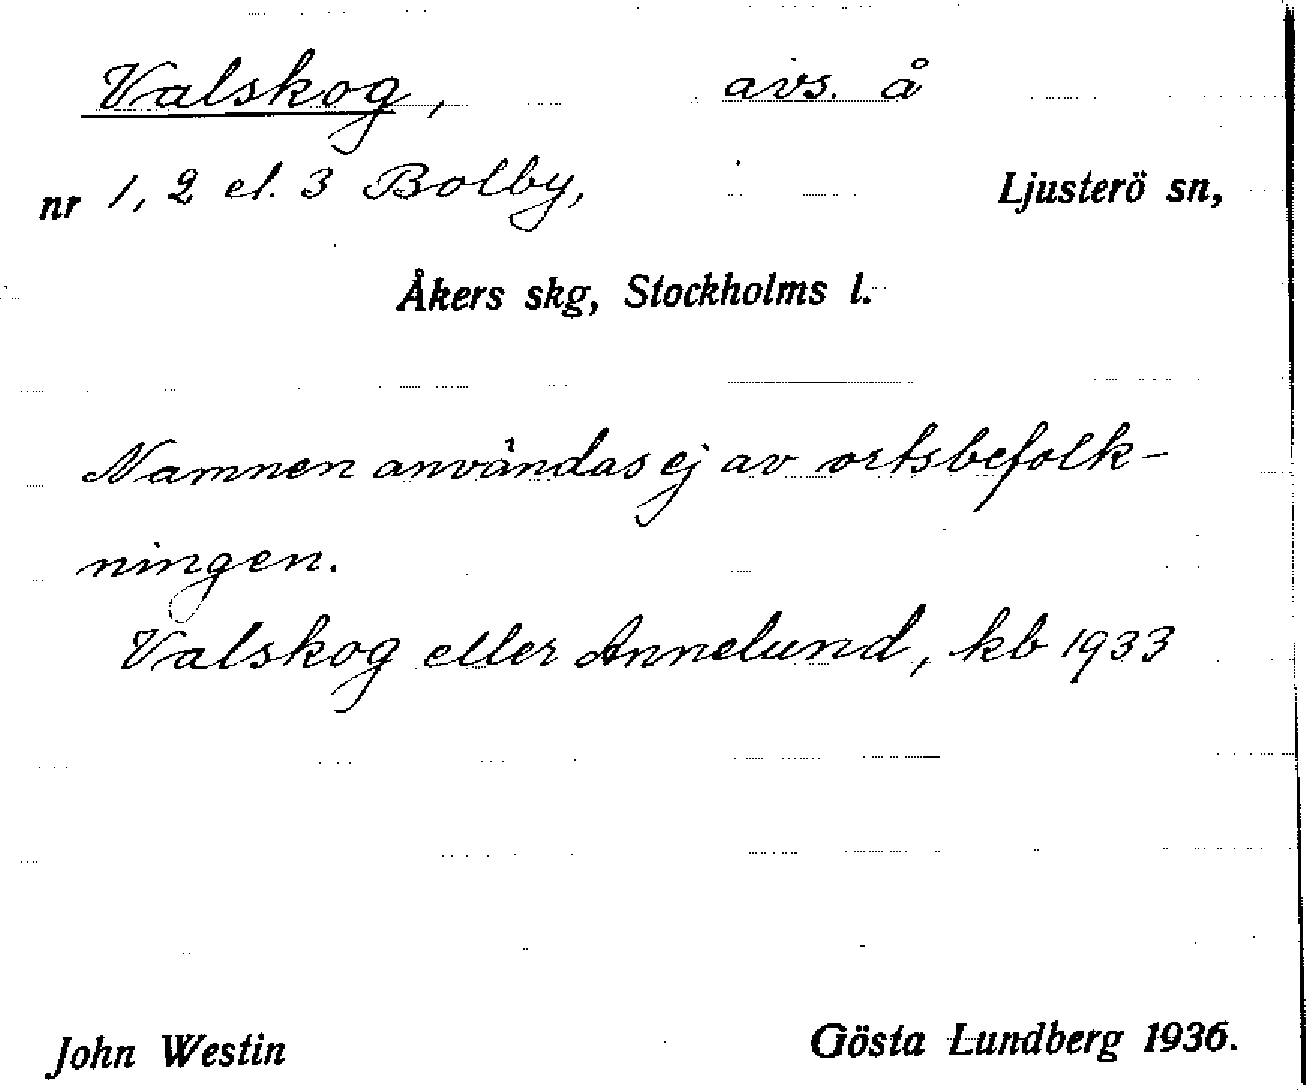 Valskog, avs. å
nr 1, 2 el. 3 Bolby, Ljusterö sn,
Åkers skg, Stockholms l.
Namnen användas ej av ortsbefolk-
ningen.
Valskog eller Annelund, kb 1933
John Westin Gösta Lundberg 1936.